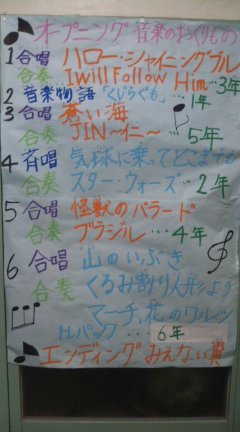 オープニング 音楽のおくりもの
1 合唱 ハロー・シャイニングブルー
合奏 I will Follow Him…3年
2 音楽物語「くじらぐも」…1年
3 合唱 蒼い海
合奏 JIN〜仁〜…5年
4 斉唱 気球に乗ってどこまでも
合奏 スター・ウォーズ…2年
5 合唱 怪獣のバラード
合奏 ブラジル…4年
6 合唱 山のいぶき
合奏 くるみ割り人形より
マーチ、花のワルツ
トレパック…6年
エンディング みえない翼